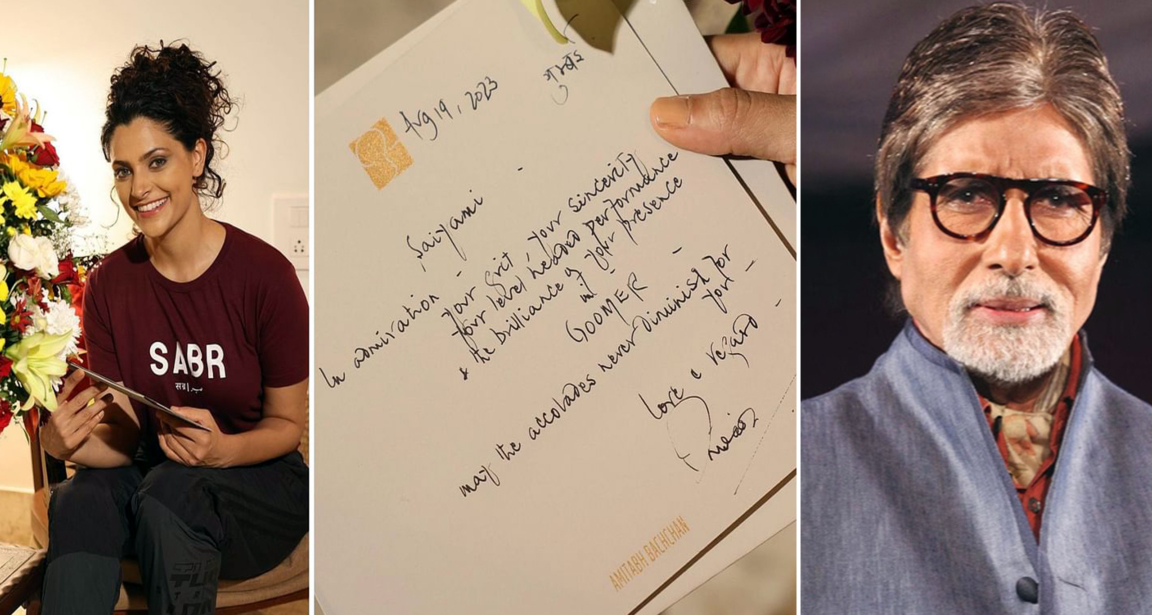 SABR
सब्र|صبر
Aug 19, 2023
Saiyami -
In admiration - your Grit, your sincerity
your level headed performance
& the brilliance of your presence
in
GOOMER -
may the accolades never Diminish for
you -
love & regard -
AMITABH BACHCHAN